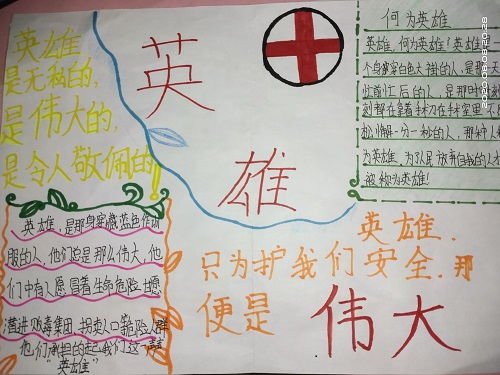 英雄
是无私的，
是伟大的，
是令人敬佩的
英
雄
何为英雄
英雄，何为英雄？英雄
个身穿白色大褂的人，是
此前忙后的人，是那时刻
刻帮在拿着手术刀在手术室里不
松懈一分一秒的人，那种人
为英雄，为了人民放弃自我的人才
被称为英雄！
英雄，是那身穿藏蓝色作训
服的人，他们总是那么伟大，他
们中有人愿冒着生命危险，甘愿
潜进贩毒集团，拐卖人口等危险人群
他们承担的起我们这一声
“英雄”
英雄，
只为护我们安全，那
便是
伟大